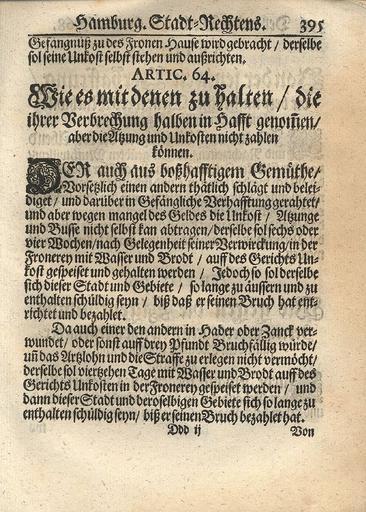 Hamburg. Stadt-Rechtens. 395
Gefängnuß zu des Fronen Hause wird gebracht / derselbe
sol seine Unkost selbst stehen und außrichten.
ARTIC. 64.
Wie es mit denen zu halten / die
ihrer Verbrechung halben in Hafft genom̃en /
aber die Atzung und Unkosten nicht zahlen
können.
DER auch aus boßhafftigem Gemüthe /
Vorsetzlich einen andern thätlich schlägt und belei-
diget / und darüber in Gefängliche Verhafftung gerahtet /
und aber wegen mangel des Geldes die Unkost / Atzunge
und Busse nicht selbst kan abtragen / derselbe sol sechs oder
vier Wochen / nach Gelegenheit seiner Verwirckung / in der
Fronerey mit Wasser und Brodt / auff des Gerichts Un-
kost gespeiset und gehalten werden / Jedoch so sol derselbe
sich dieser Stadt und Gebiete / so lange zu äussern und zu
enthalten schüldig seyn / biß daß er seinen Bruch hat ent-
richtet und bezahlet.
Da auch einer den andern in Hader oder Zanck ver-
wundet / oder sonst auff drey Pfundt Bruchfällig würde /
uñ das Artzlohn und die Straffe zu erlegen nicht vermöcht /
derselbe sol viertzehen Tage mit Wasser und Brodt auff des
Gerichts Unkosten in der Fronerey gespeiset werden / und
dann dieser Stadt und deroselbigen Gebiete sich so lange zu
enthalten schüldig seyn / biß er seinen Bruch bezahlet hat.
Ddd ij Von